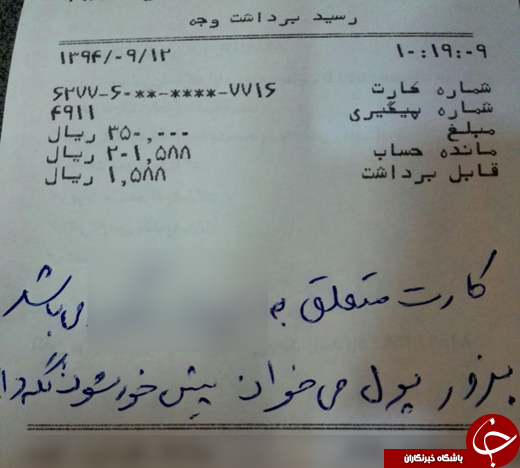 رسید برداشت وجه
۱۳۹۴/۰۹/۱۲ ۱۰:۱۹:۰۹
شماره کارت ۶۲۷۷-۶۰**-****-۷۷۱۶
شماره پیگیری ۴۹۱۱
مبلغ ۳۵۰,۰۰۰ ریال
مانده حساب ۲۰۱,۵۸۸ ریال
قابل برداشت ۱,۵۸۸ ریال
کارت متعلق به می باشد
بزور پول می خوان پیش خودشون نگه دا
باشگاه خبرنگاران